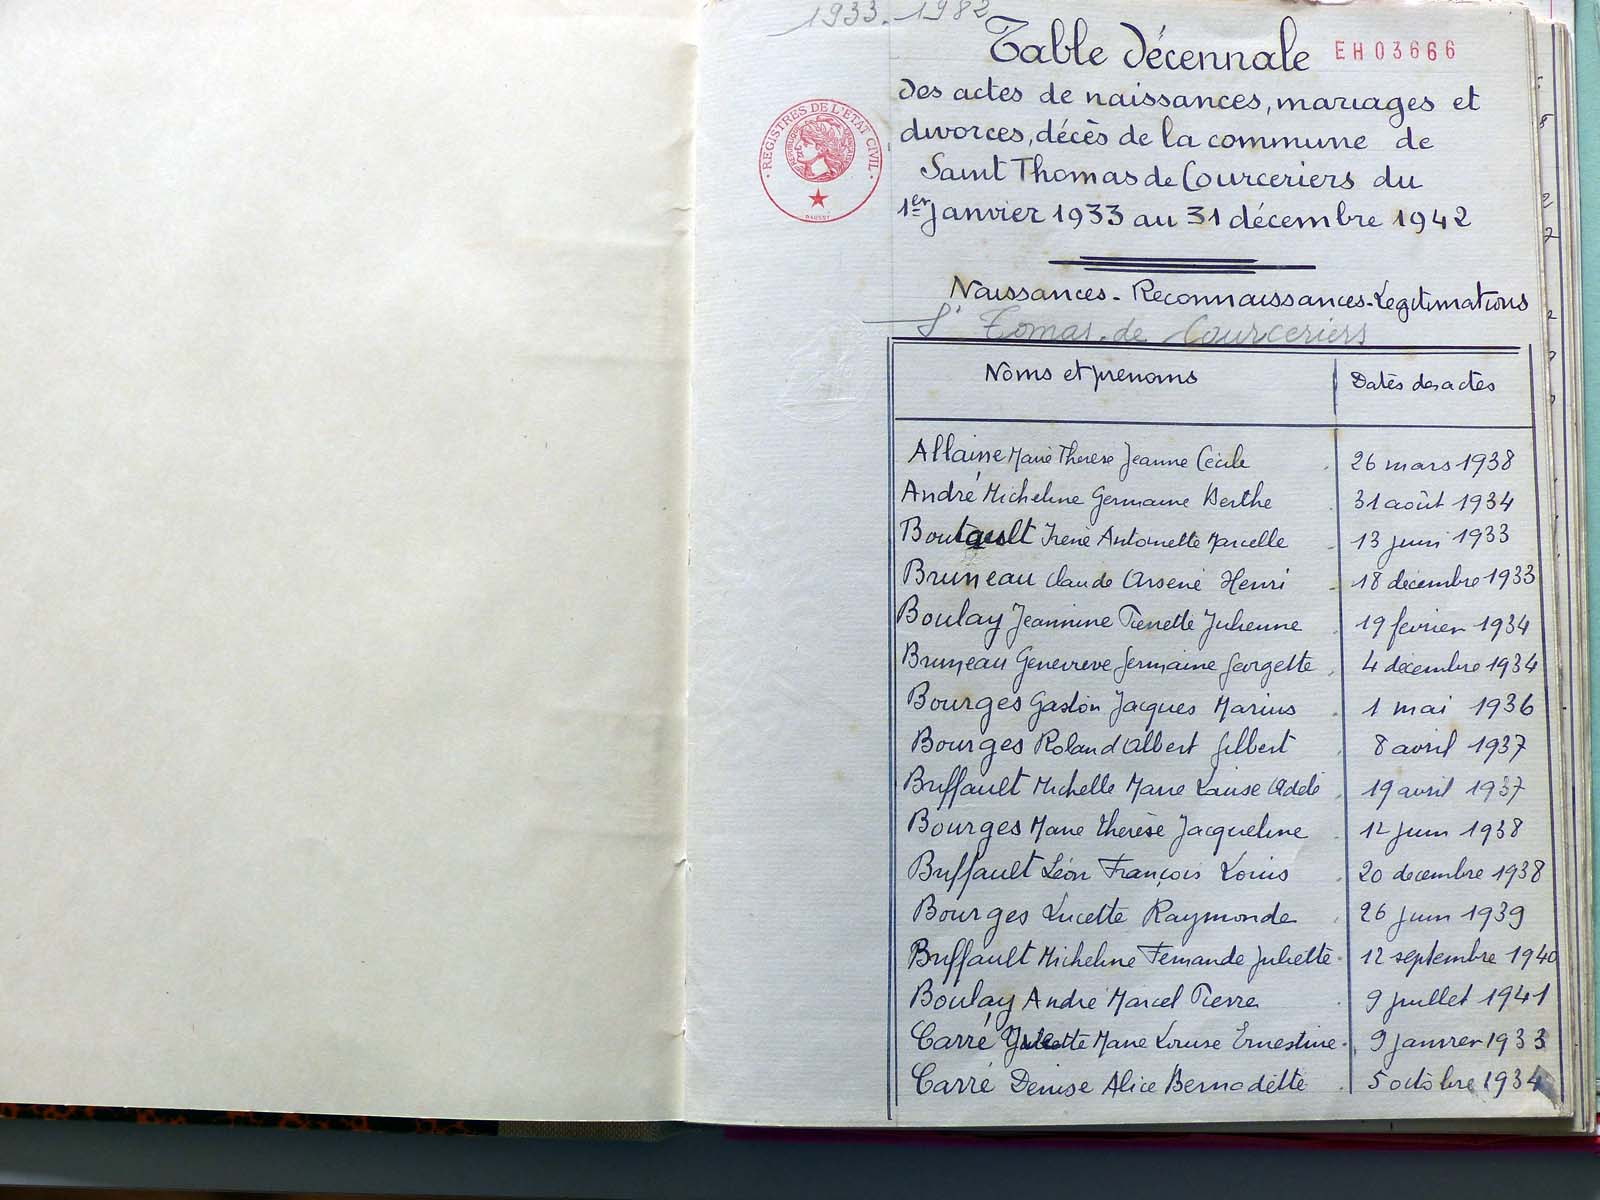 1933-1982
Table Décennale EH03666
des actes de naissances, mariages et
divorces, décès de la commune de
Saint Thomas de Courceriers du
1er Janvier 1933 au 31 décembre 1942
· REGISTRES DE L'ÉTAT CIVIL ·
Naissances - Reconnaissances - Légitimations
St Tomas de Courceriers
Noms et prénoms Dates des actes
Allaine Marie Thérèse Jeanne Cécile 26 mars 1938
André Micheline Germaine Berthe 31 août 1934
Boutault Irène Antoinette Marcelle 13 juin 1933
Bruneau Claude Arsène Henri 18 décembre 1933
Boulay Jeannine Pierrette Julienne 19 février 1934
Bruneau Geneviève Germaine Georgette 4 décembre 1934
Bourges Gaston Jacques Marius 1 mai 1936
Bourges Roland Albert Gilbert 8 avril 1937
Buffault Michelle Marie Louise Adèle 19 avril 1937
Bourges Marie Thérèse Jacqueline 12 juin 1938
Buffault Léon François Louis 20 décembre 1938
Bourges Lucette Raymonde 26 juin 1939
Buffault Micheline Fernande Juliette 12 septembre 1940
Boulay André Marcel Pierre 9 juillet 1941
Carré Marie Louise Ernestine 9 janvier 1933
Carré Denise Alice Bernadette 5 octobre 1934